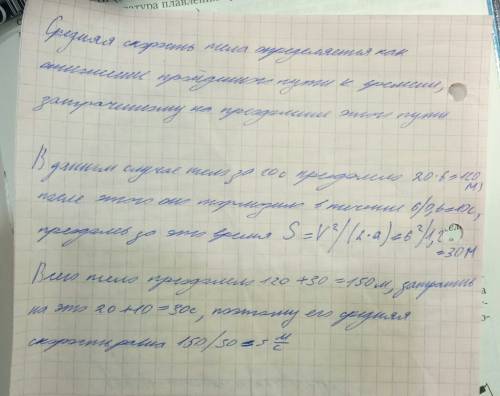 атура плавлени
Средняя скорость тела определяется как
отношение пройденного пути к времени,
затраченному на преодоление этого пути
В данном случае тело за 20с преодолело 20·6=120 м,
после этого оно тормозило в течение 6/0,6=10с,
преодолев за это время S=V²/(2·a)=6²/1,2
=30м
Всего тело преодолело 120+30=150м, затратив
на это 20+10=30с, поэтому его средняя
скорость равна 150/30=5 м/с